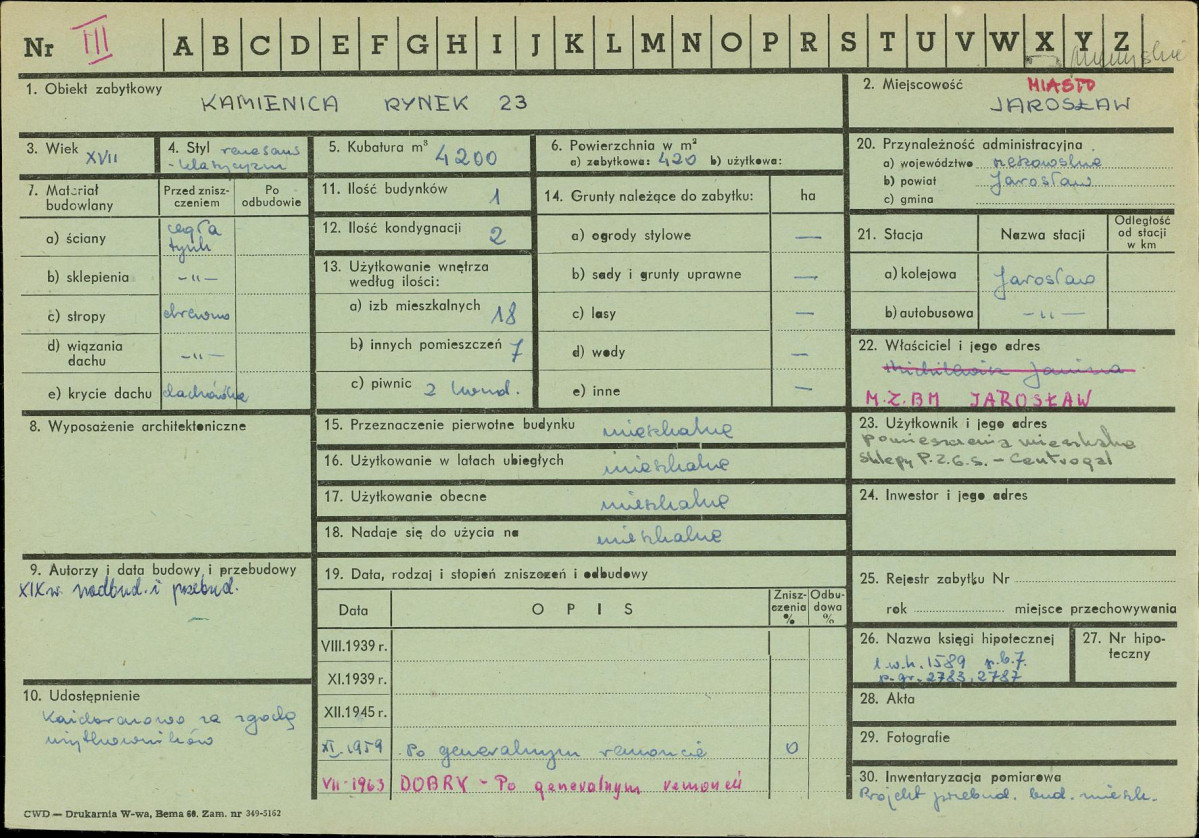 Nr III A B C D E F G H I J K L M N O P R S T U V W X Y Z
1. Obiekt zabytkowy
KAMIENICA RYNEK 23
2. Miejscowość MIASTO
JAROSŁAW
3. Wiek XVII
4. Styl renesans
-klasycyzm
5. Kubatura m³ 4200
6. Powierzchnia w m²
a) zabytkowa: 420 b) użytkowa:
7. Materiał budowlany
Przed zniszczeniem
Po odbudowie
a) ściany cegła
tynk
b) sklepienia -"-
c) stropy drewno
d) wiązania
dachu -"-
e) krycie dachu dachówka
8. Wyposażenie architektoniczne
9. Autorzy i data budowy i przebudowy
XIX w. nadbud. i przebud.
10. Udostępnienie
Każdorazowo za zgodą
użytkowników
11. Ilość budynków 1
12. Ilość kondygnacji 2
13. Użytkowanie wnętrza
według ilości:
a) izb mieszkalnych 18
b) innych pomieszczeń 7
c) piwnic 2 kond.
14. Grunty należące do zabytku: ha
a) ogrody stylowe —
b) sady i grunty uprawne —
c) lasy —
d) wody —
e) inne —
15. Przeznaczenie pierwotne budynku mieszkalne
16. Użytkowanie w latach ubiegłych mieszkalne
17. Użytkowanie obecne mieszkalne
18. Nadaje się do użycia na mieszkalne
19. Data, rodzaj i stopień zniszczeń i odbudowy
Data OPIS Zniszczenia % Odbudowa %
VIII.1939 r.
XI.1939 r.
XII.1945 r.
XI.1959 Po generalnym remoncie 0
VII-1963 DOBRY - Po generalnym remoncie
20. Przynależność administracyjna
a) województwo rzeszowskie
b) powiat Jarosław
c) gmina
21. Stacja Nazwa stacji Odległość
od stacji
w km
a) kolejowa Jarosław
b) autobusowa -"-
22. Właściciel i jego adres
Janina
M.Z.BM JAROSŁAW
23. Użytkownik i jego adres
pomieszczenia mieszkalne
sklepy P.Z.G.S. - Centrogal
24. Inwestor i jego adres
25. Rejestr zabytku Nr
rok miejsce przechowywania
26. Nazwa księgi hipotecznej
l.w.h. 1589 p.b.7.
p.gr. 2783, 2787
27. Nr hipoteczny
28. Akta
29. Fotografie
30. Inwentaryzacja pomiarowa
Projekt przebud. bud. mieszk.
CWD — Drukarnia W-wa, Bema 60. Zam. nr 349-5162